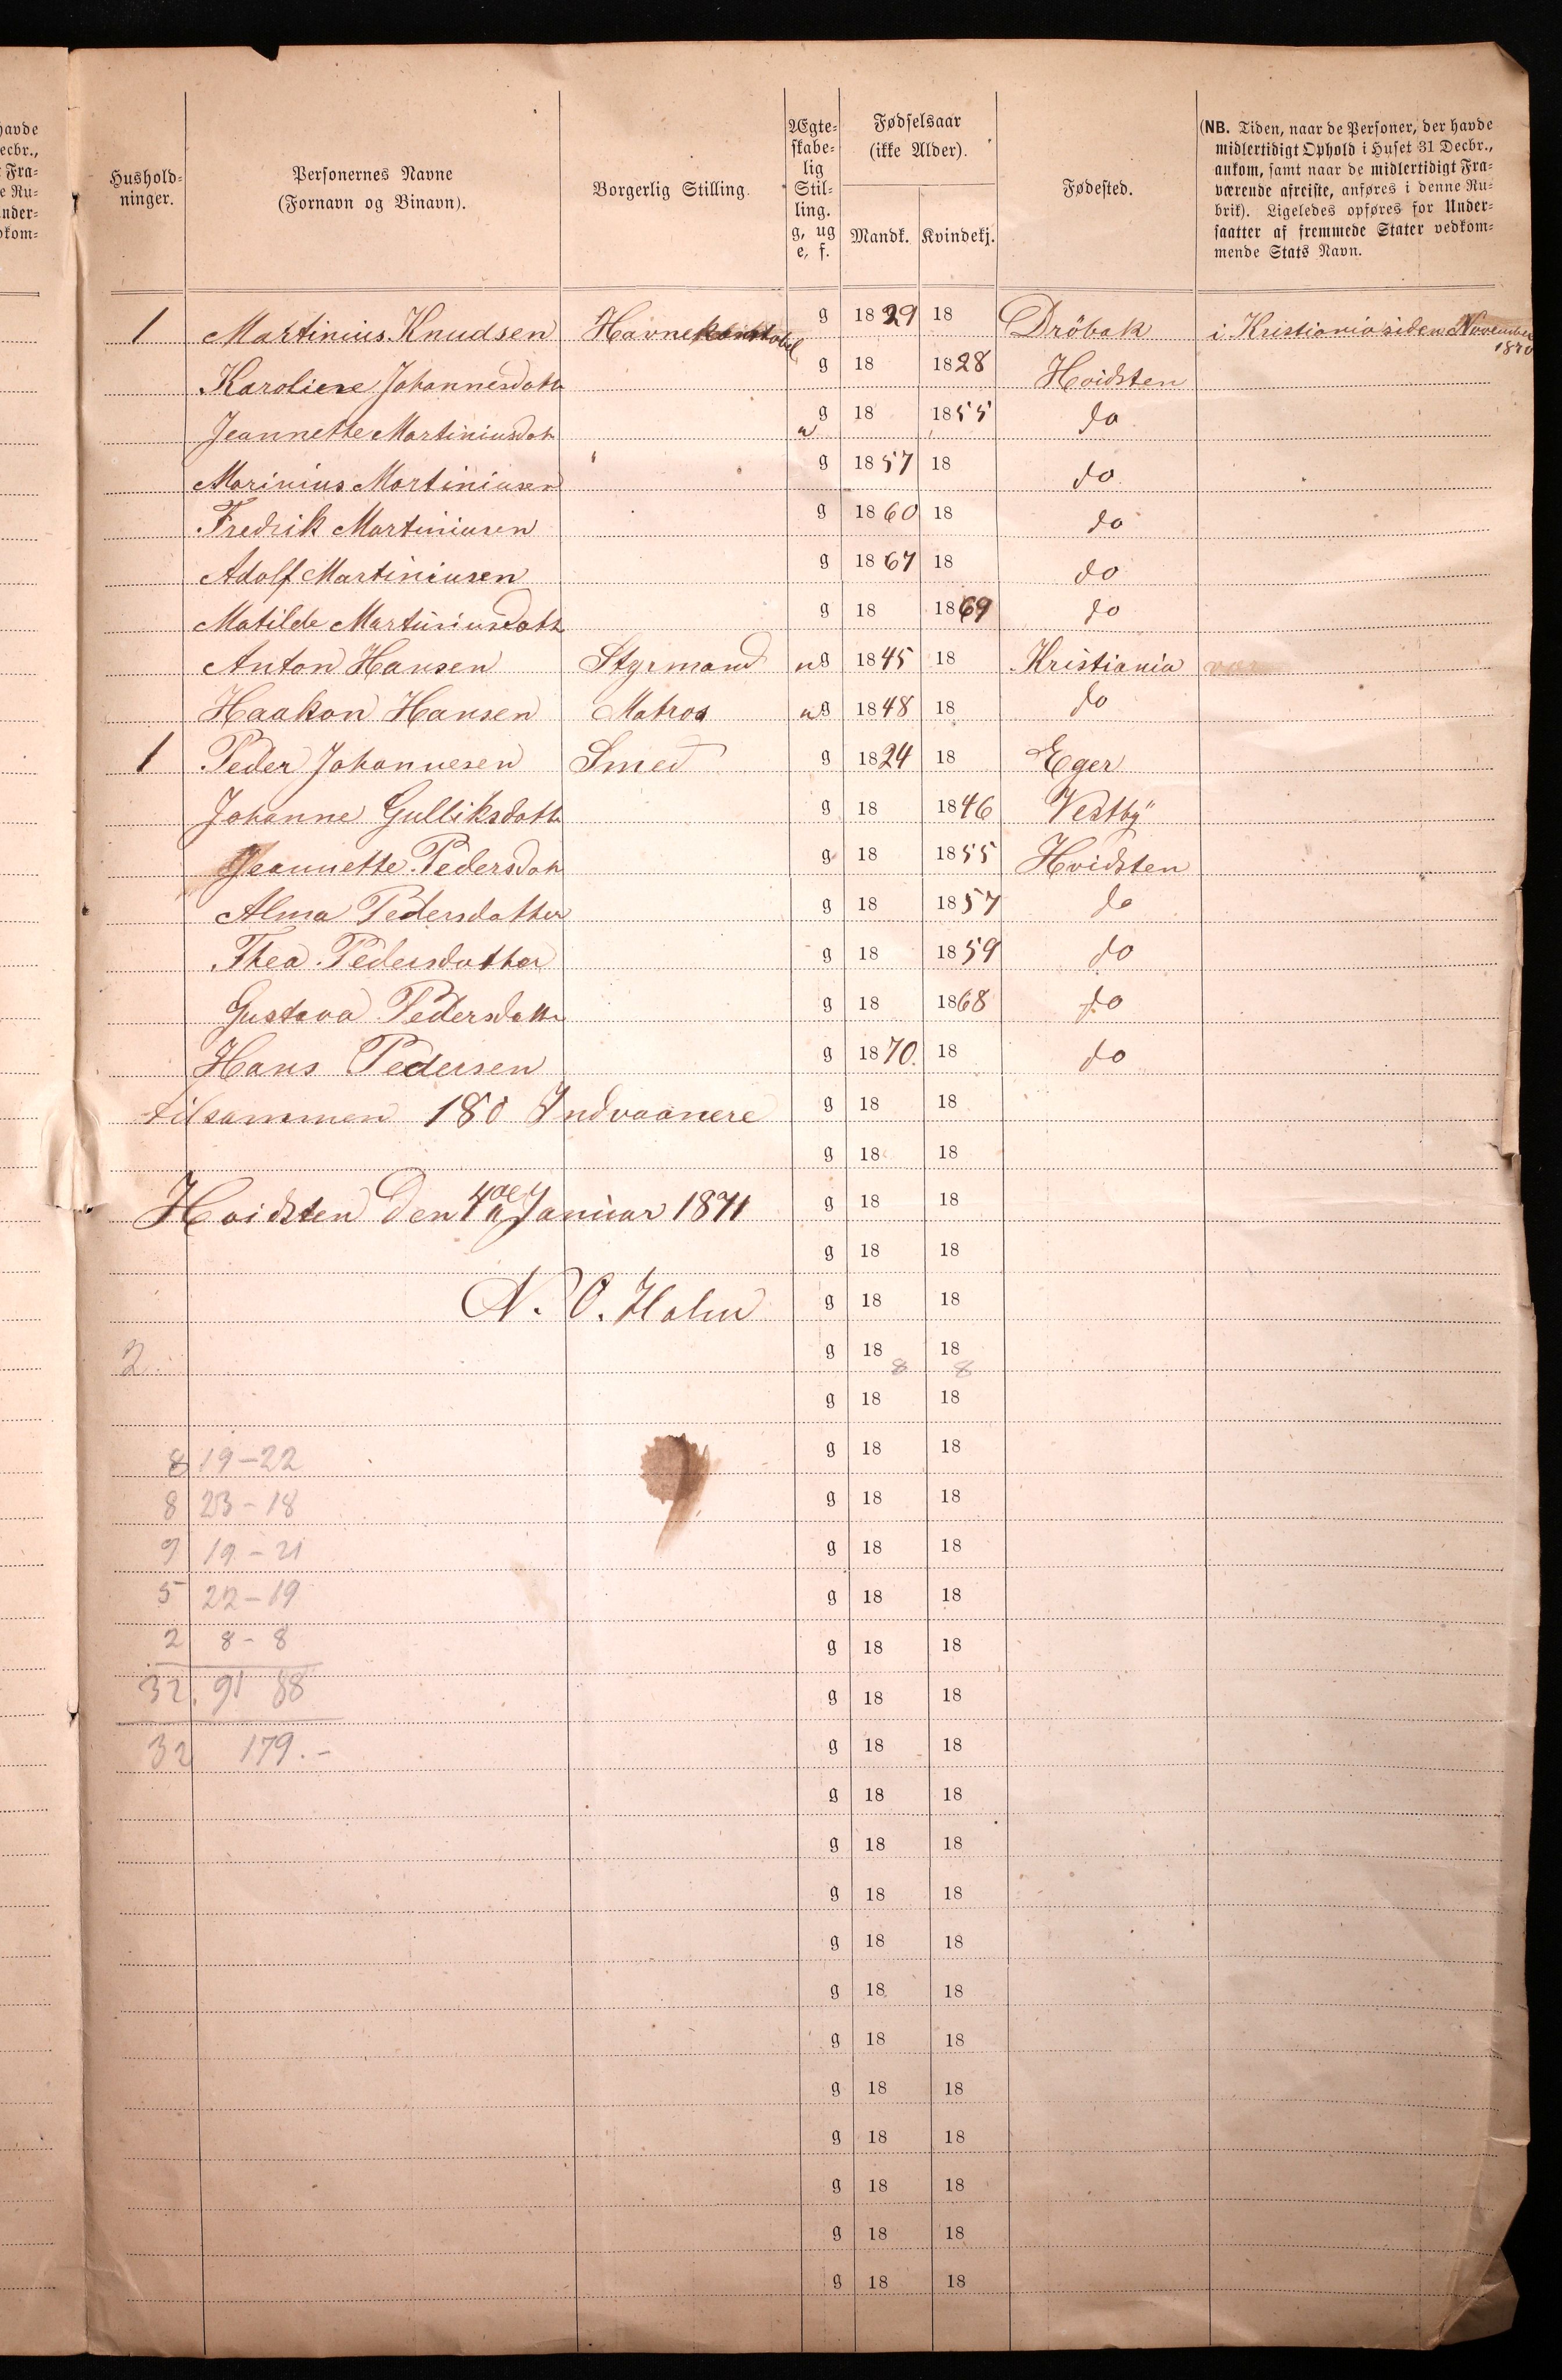 havde
ecbr.,
Fra-
e Ru-
nder-
dkom-
Hushold-
ninger.
Personernes Navne
(Fornavn og Binavn).
Borgerlig Stilling.
Ægte-
skabe-
lig
Stil-
ling.
g, ug
e, f.
Fødselsaar
(ikke Alder).
Mandk. Kvindekj.
Fødested.
(NB. Tiden, naar de Personer, der havde
midlertidigt Ophold i Huset 31 Decbr.,
ankom, samt naar de midlertidigt Fra-
værende afreiste, anføres i denne Ru-
brik). Ligeledes opføres for Under-
saatter af fremmede Stater vedkom-
mende Stats Navn.
1 Martinius Knudsen Havnekonstabel g 1829 18 Dröbak i Kristiania siden November 1870
Karoline Johannesdatt g 18 1828 Hvidsten
Jeannette Martiniusdat u g 18 1855 do
Marinius Martiniusen g 1857 18 do
Fredrik Martiniusen g 1860 18 do
Adolf Martiniusen g 1867 18 do
Matilde Martiniusdatt g 18 1869 do
Anton Hansen Styrmand ug 1845 18 Kristiania
Haakon Hansen Matros ug 1848 18 do
1 Peder Johannesen Smed g 1824 18 Eger
Johanne Gulliksdatt g 18 1846 Vestby
Jeannette Pedersdat g 18 1855 Hvidsten
Alma Pedersdatter g 18 1857 do
Thea Pedersdatter g 18 1859 do
Gustava Pedersdatt g 18 1868 do
Hans Pedersen g 1870 18 do
tilsammen 180 Indvaanere g 18 18
g 18 18
Hvidsten den Januar 1871 g 18 18
g 18 18
N. O. Holm g 18 18
2 g 18 18
8 8
g 18 18
8 19-22 g 18 18
8 23-18 g 18 18
9 19-21 g 18 18
5 22-19 g 18 18
2 8-8 g 18 18
32. 91 88 g 18 18
32 179.- g 18 18
g 18 18
g 18 18
g 18 18
g 18 18
g 18 18
g 18 18
g 18 18
g 18 18
g 18 18
g 18 18
g 18 18